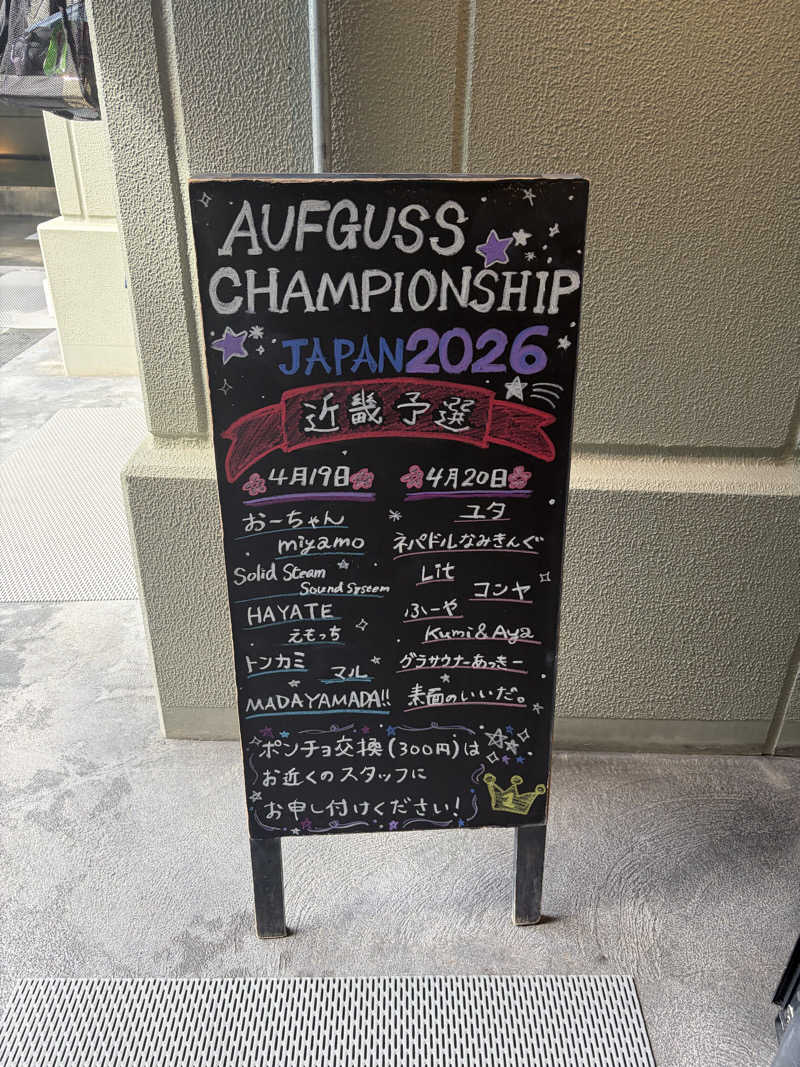 AUFGUSS
CHAMPIONSHIP
JAPAN2026
近畿予選
4月19日
おーちゃん
miyamo
Solid Steam
Sound System
HAYATE
えもっち
トンカミ
マル
MADAYAMADA!!
4月20日
ユタ
ネパドルなみきんぐ
Lit
コンヤ
ふーや
Kumi&Aya
グラサウナーあっきー
素面のいいだ。
ポンチョ交換(300円)は
お近くのスタッフに
お申し付けください!